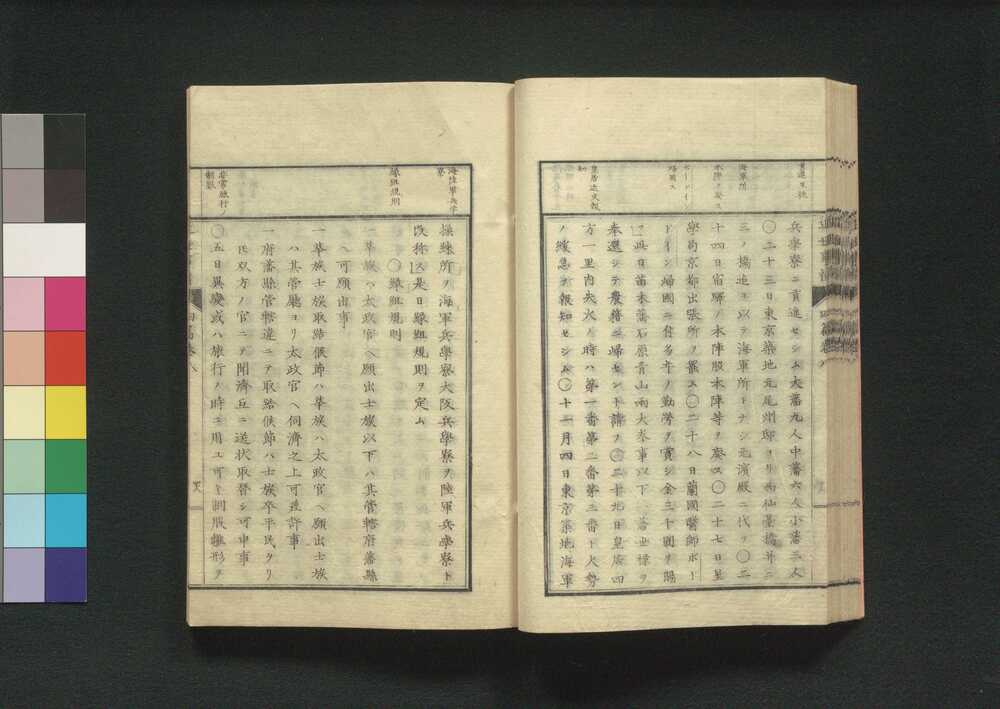 兵學寮ニ貢進セシム大藩九人中藩六人小藩三人
〇二十三日東京築地元尾州邸ヨリ南仙臺橋並ニ
三ノ橋迄ヲ以テ海軍所トナシ元濱殿ニ代フ〇二
十四日宿驛ノ本陣脇本陣等ヲ廢ス〇二十七日星
學局京都出張所ヲ罷ス〇二十八日蘭國醫師ボー
ドイン歸國ニ付多年ノ勤勞ヲ賞シ金三千圓ヲ賜
フ此日苗木藩石原青山兩大參事以下
奉還シテ農籍ニ歸セント請フ〇二十九日皇居四
方一里内失火ノ時ハ第一番第二番第三番ト火勢
ノ緩急ヲ報知セシム〇十一月四日東京築地海軍
海軍所
本陣ヲ廢ス
ボードイン
歸國ス
皇居近火報
知
操練所ヲ海軍兵學寮大阪兵學寮ヲ陸軍兵學寮ト
改称ス是日縁組規則ヲ定ム
〇縁組規則
一華族ハ太政官ヘ願出士族以下ハ其管轄府藩縣
ヘ可願出事
一華族士族取結候節ハ華族ハ太政官ヘ願出士族
ハ其管廳ヨリ太政官ヘ伺濟之上可差許事
一府藩縣管轄違ニテ取結候節ハ士族卒平民タリ
氏双方ノ官ニテ聞濟互ニ送状取替シ可申事
〇五日異變或ハ旅行ノ時ニ用ユ可キ制服雛形ヲ
海陸軍兵学
寮
縁組規則
非常旅行ノ
制服